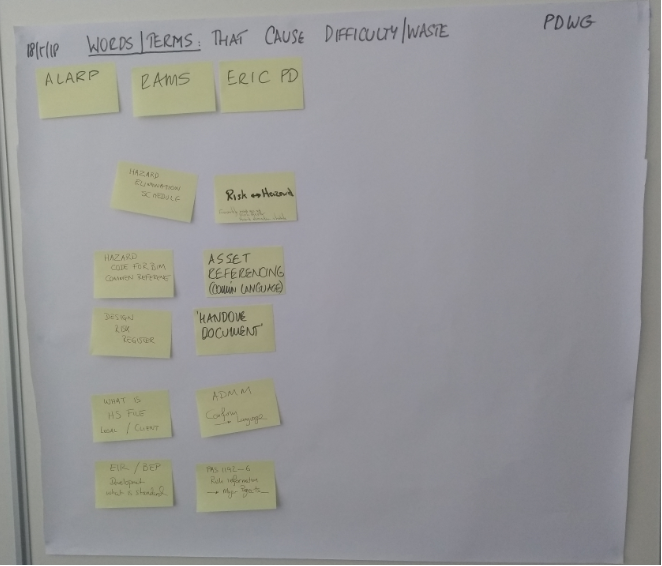 18/5/18 WORDS/TERMS: THAT CAUSE DIFFICULTY/WASTE PDWG
ALARP
RAMS
ERIC PD
HAZARD
ELIMINATION
SCHEDULE
Risk ↔ Hazard
HAZARD
CODE FOR BIM
COMMON REFERENCE
ASSET
REFERENCING
(COMMON LANGUAGE)
DESIGN
RISK
REGISTER
"HANDOVE
DOCUMENT"
WHAT IS
HS FILE
LEGAL / CLIENT
ADMM
Confusing
→ Language
EIR / BEP
Development
what is standard
PAS 1192-6
Risk information
→ Major Projects